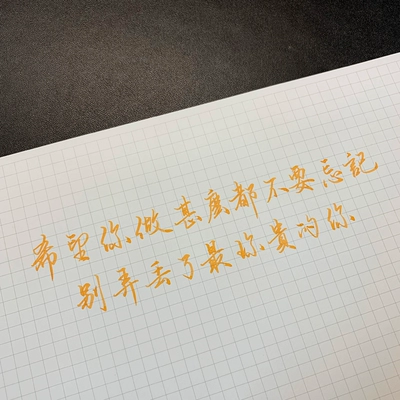 希望你做甚麼都不要忘記
别弄丢了最珍貴的你